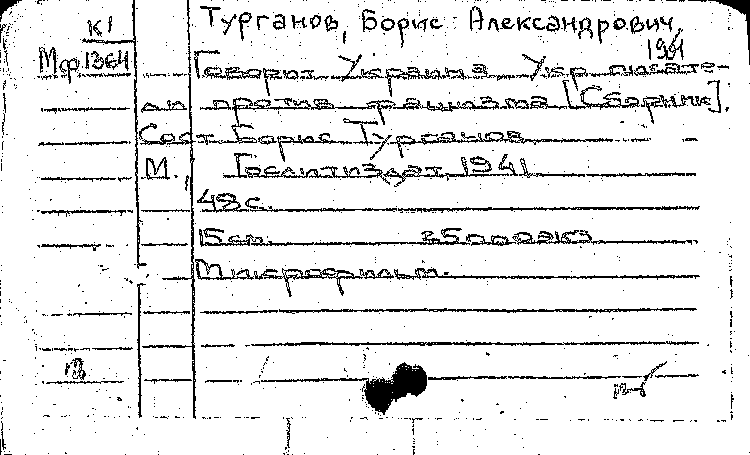 К1
Турганов, Борис Александрович,
1941
Мф.1364
Говорит Украина. Укр. писате-
ли против фашизма [Сборник].
Сост. Борис Турганов.
М., Гослитиздат, 1941
48 с.
15 см. 25000экз
Микрофильм.